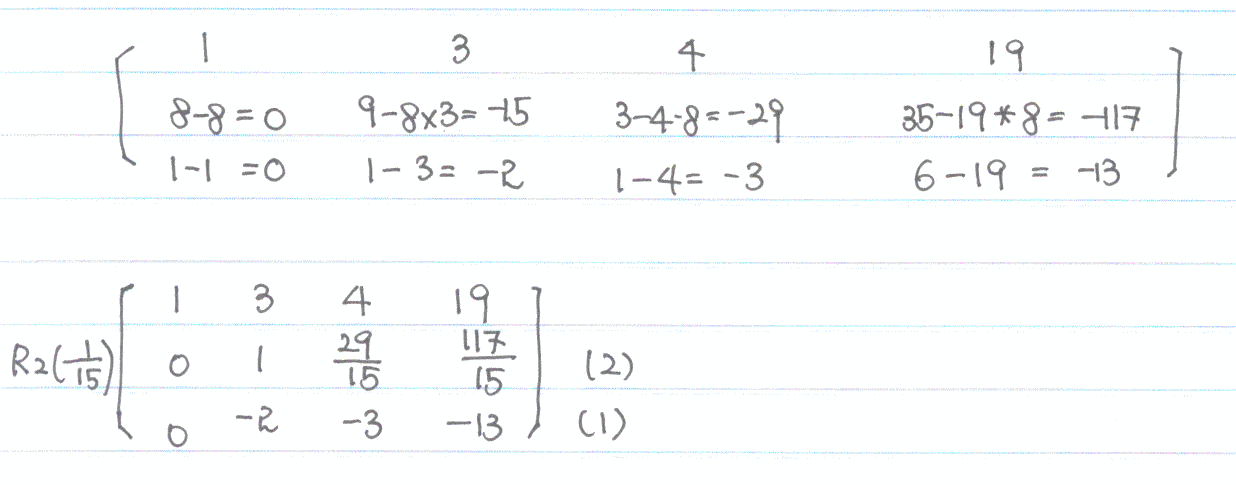 1 3 4 19
8-8=0 9-8×3=-15 3-4·8=-29 35-19*8=-117
1-1=0 1-3=-2 1-4=-3 6-19=-13
1 3 4 19
R2(-1/15) 0 1 29/15 117/15 (2)
0 -2 -3 -13 (1)